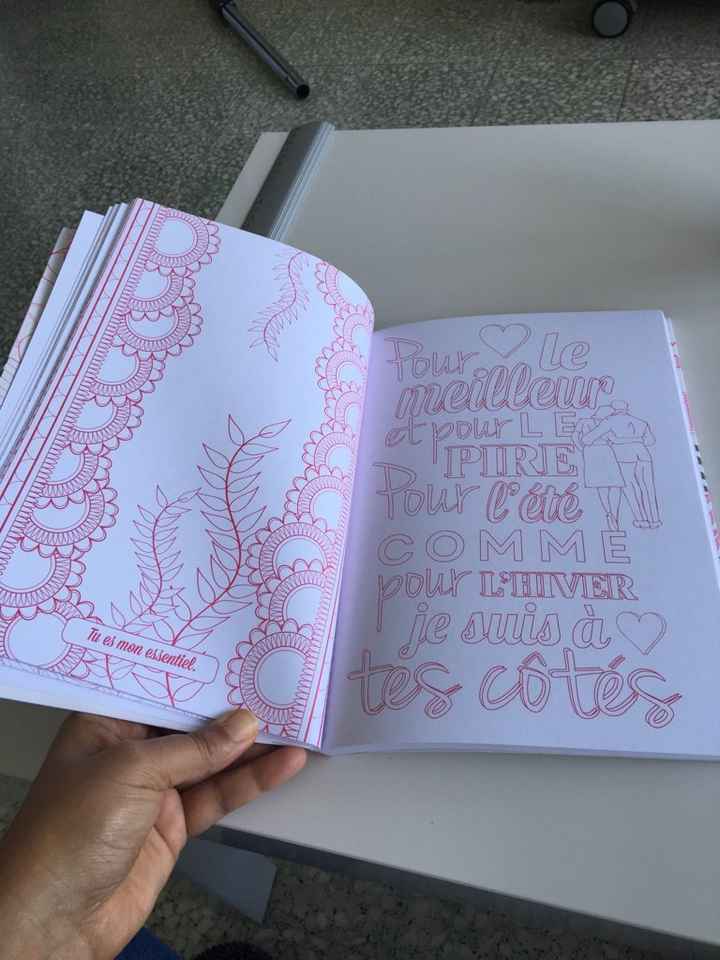 Tu es mon essentiel.
Pour le
meilleur
et pour LE
PIRE
Pour l'été
COMME
pour L'HIVER
je suis à
tes côtés